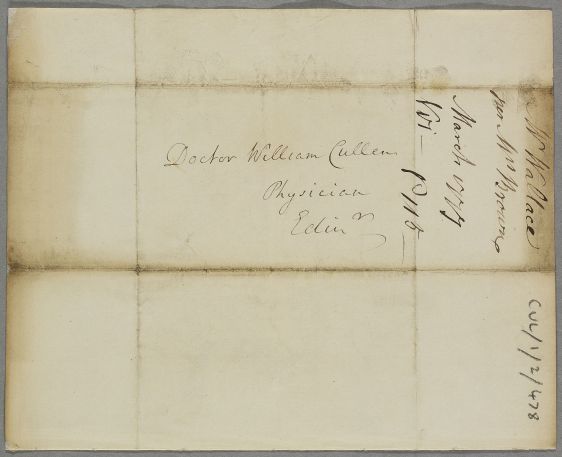 Doctor William Cullen
Physician
Edinr
Mr Wallace
Mrs Brown
March 1777
Vi— P 115—
CUL/1/2/478